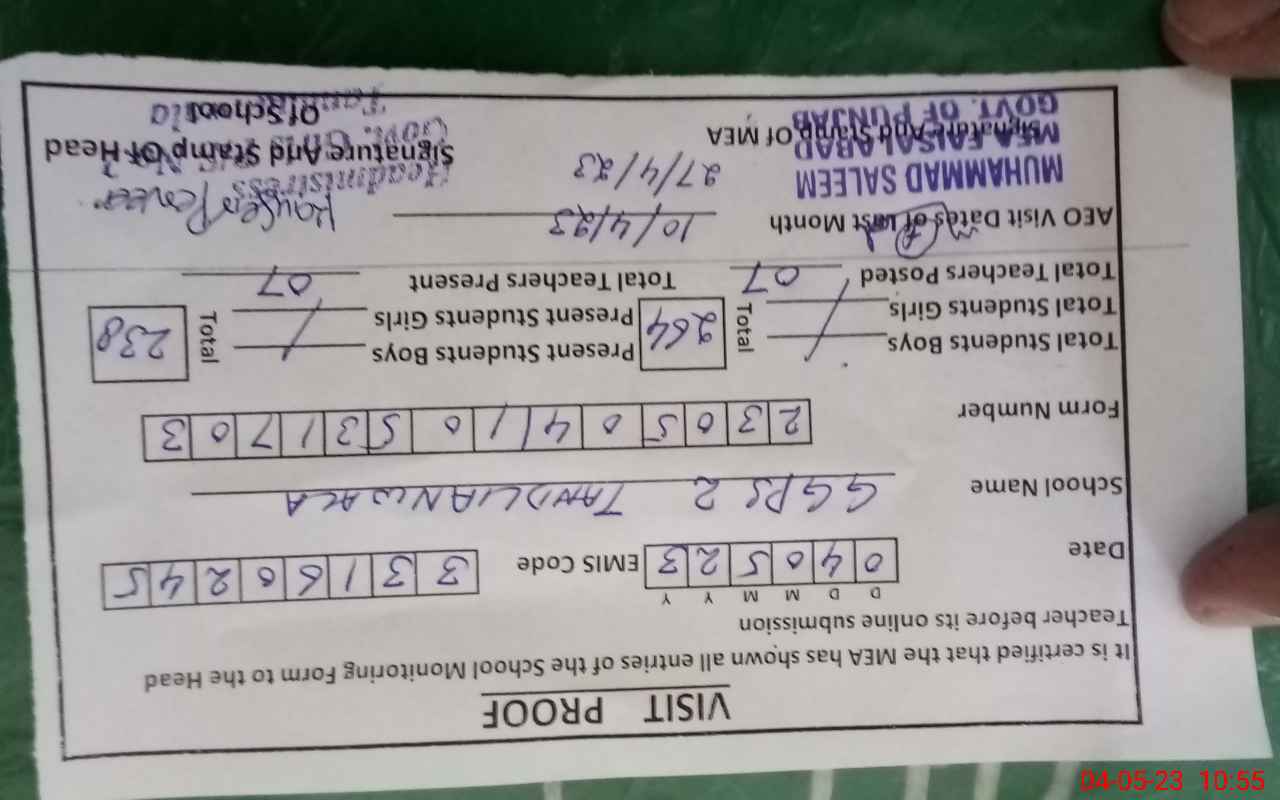 VISIT PROOF
It is certified that the MEA has shown all entries of the School Monitoring Form to the Head
Teacher before its online submission
D D M M Y Y
Date 0 4 0 5 2 3 EMIS Code 3 3 1 6 0 2 4 5
School Name GGPS 2 TANDLIANWALA
Form Number 2 3 0 5 0 4 1 0 5 3 1 7 0 3
Total Students Boys Total 264 Present Students Boys Total 238
Total Students Girls Present Students Girls
Total Teachers Posted 07 Total Teachers Present 07
AEO Visit Dates of Last Month 10/4/23
27/4/23
MUHAMMAD SALEEM
MEA FAISALABAD
GOVT. OF PUNJAB
Signature And Stamp Of MEA
Headmistress
Signature And Stamp Of Head
Of School
04-05-23 10:55